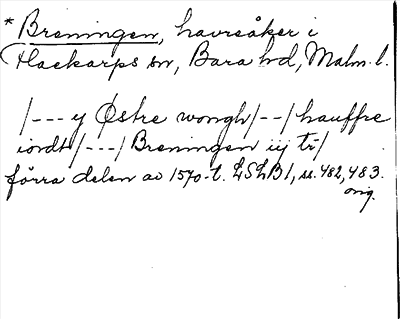 *Breningen, havreåker i
Flackarps sn, Bara hd, Malm. l.
/---y Østre wongh/--/hauffre
iordt/---/Breningen iij tr/
förra delen av 1570-t. LSLB1, ss. 482, 483.
orig.